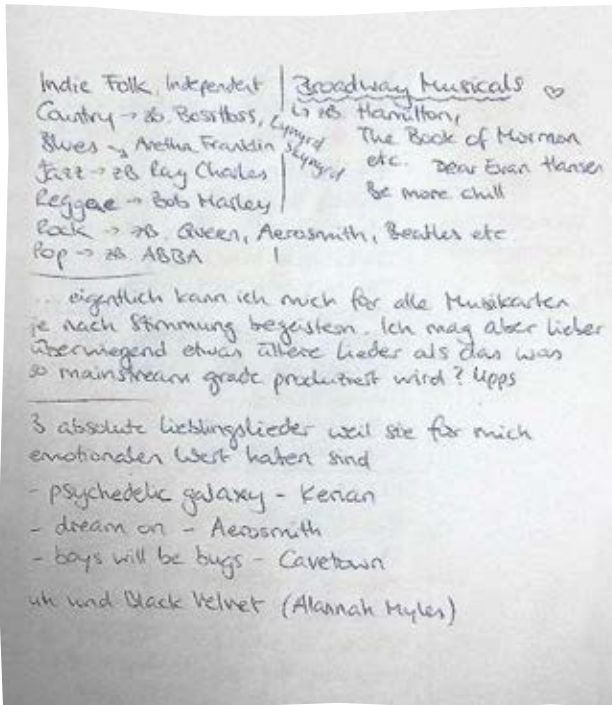 Indie Folk, Independent
Country → zB. BossHoss, Lynyrd Skynyrd
Blues → Aretha Franklin
Jazz → zB Ray Charles
Reggae → Bob Marley
Rock → zB. Queen, Aerosmith, Beatles etc
Pop → zB ABBA
Broadway Musicals ♡
↳ zB. Hamilton,
The Book of Mormon
etc. Dear Evan Hansen
Be more chill
... eigentlich kann ich mich für alle Musikarten
je nach Stimmung begeistern. Ich mag aber lieber
überwiegend etwas ältere Lieder als das was
so mainstream grade produziert wird? Upps
3 absolute Lieblingslieder weil sie für mich
emotionalen Wert haben sind
- psychedelic galaxy - Kerian
- dream on - Aerosmith
- boys will be bugs - Cavetown
uh und Black Velvet (Alannah Myles)